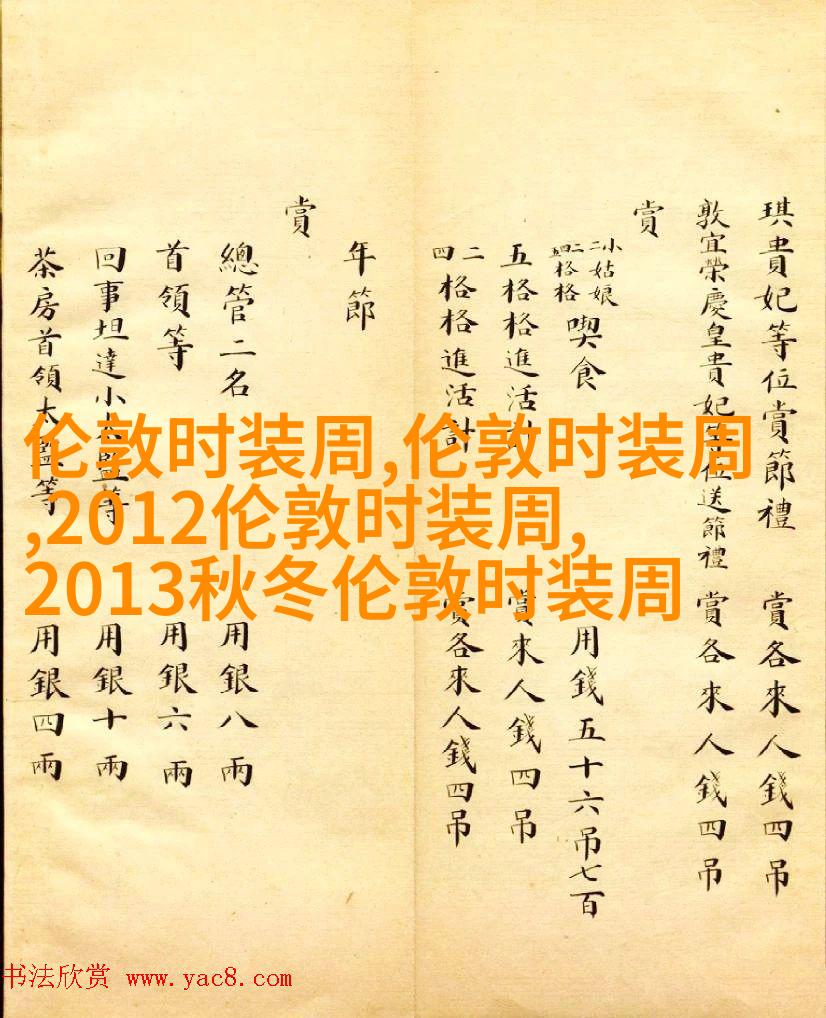 琪貴妃等位賞節禮 賞各來人錢四吊
敦宜榮慶皇貴妃等位送節禮 賞各來人錢四吊
賞
小姑娘
二二格格
五四格格
喫食 用錢五十六吊七百
五格格進活計 賞來人錢四吊
二四格格進活計 賞各來人錢四吊
年節
賞
總管二名 用銀八兩
首領等 用銀六兩
回事坦達小太監等 用銀十兩
茶房首領太監等 用銀四兩
伦敦时装周,伦敦时装周
,2012伦敦时装周,
2013秋冬伦敦时装周
书法欣赏 www.yac8.com